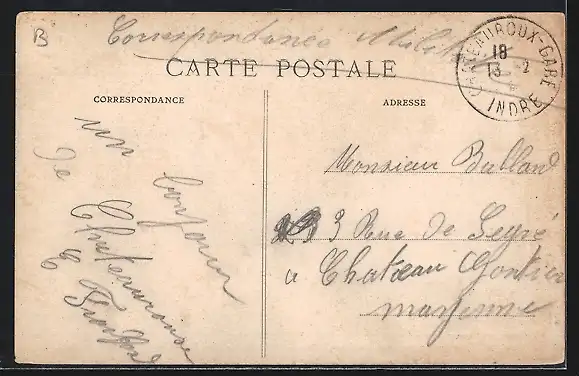 B
Correspondance Militaire
CHATEAUROUX-GARE
18
13 -2
INDRE
CARTE POSTALE
CORRESPONDANCE
ADRESSE
un bonjour
de Chateauroux
E
Monsieur Balland
3 Rue de
a Chateau Gontier
mayenne